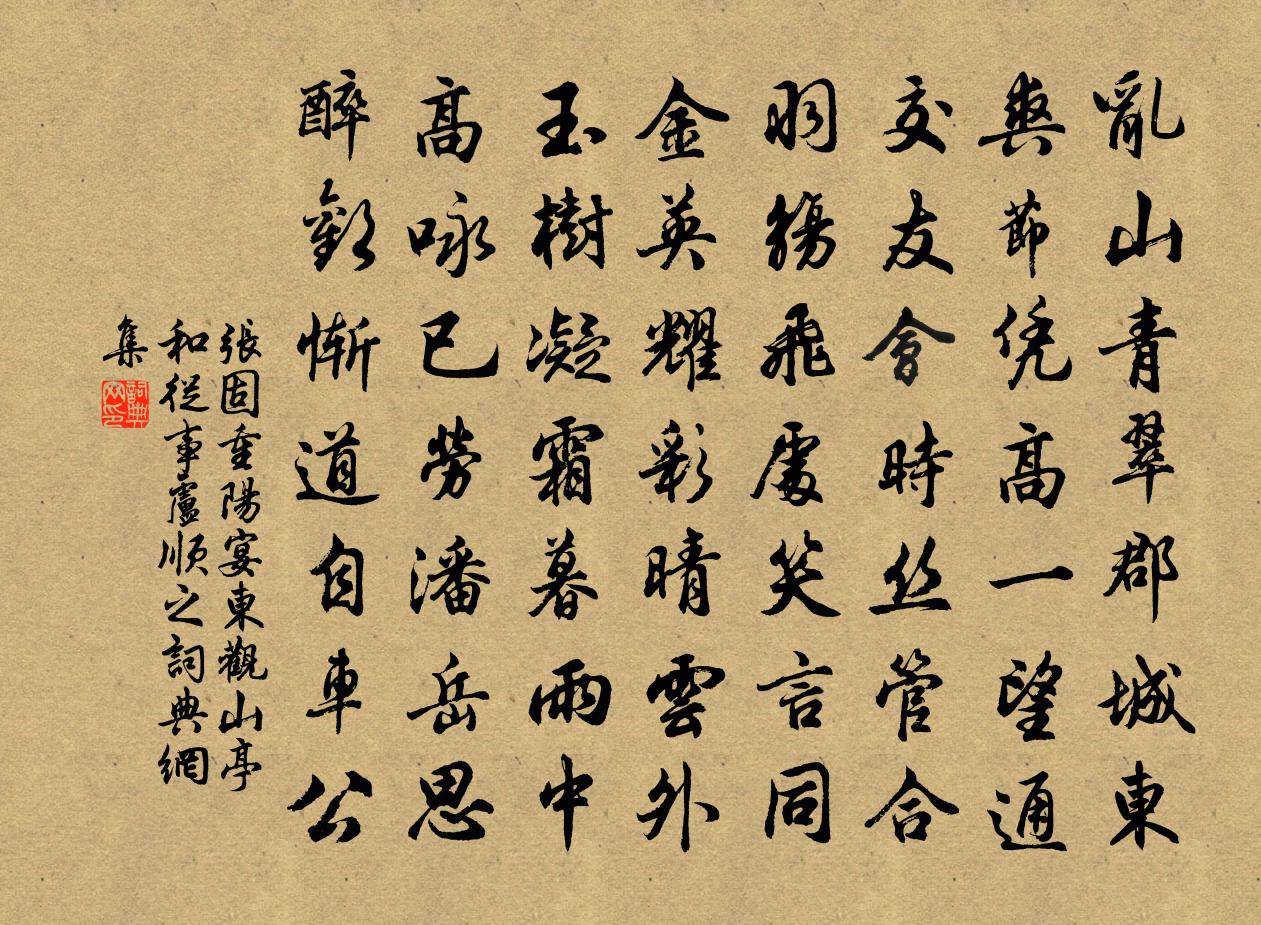 亂山青翠郡城東
爽節凭高一望通
交友會時絲管合
羽觴飛處笑言同
金英耀彩晴雲外
玉樹凝霜暮雨中
高咏已勞潘岳思
醉歡慚道自車公
張固重陽宴東觀山亭
和從事盧順之詞典網
集
詞典網印